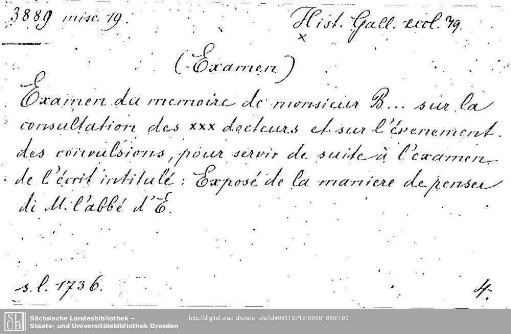 3889 misc. 19.
Hist. Gall. eccl. 79.
x
(Examen)
Examen du memoire de monsieur B... sur la
consultation des xxx docteurs et sur l'évenement
des convulsions, pour servir de suite à l'examen
de l'écrit intitulé: Exposé de la maniere de penser
di M. l'abbé d'E.
s. l. 1736.
4.
SLUB
Sächsische Landesbibliothek –
Staats- und Universitätsbibliothek Dresden